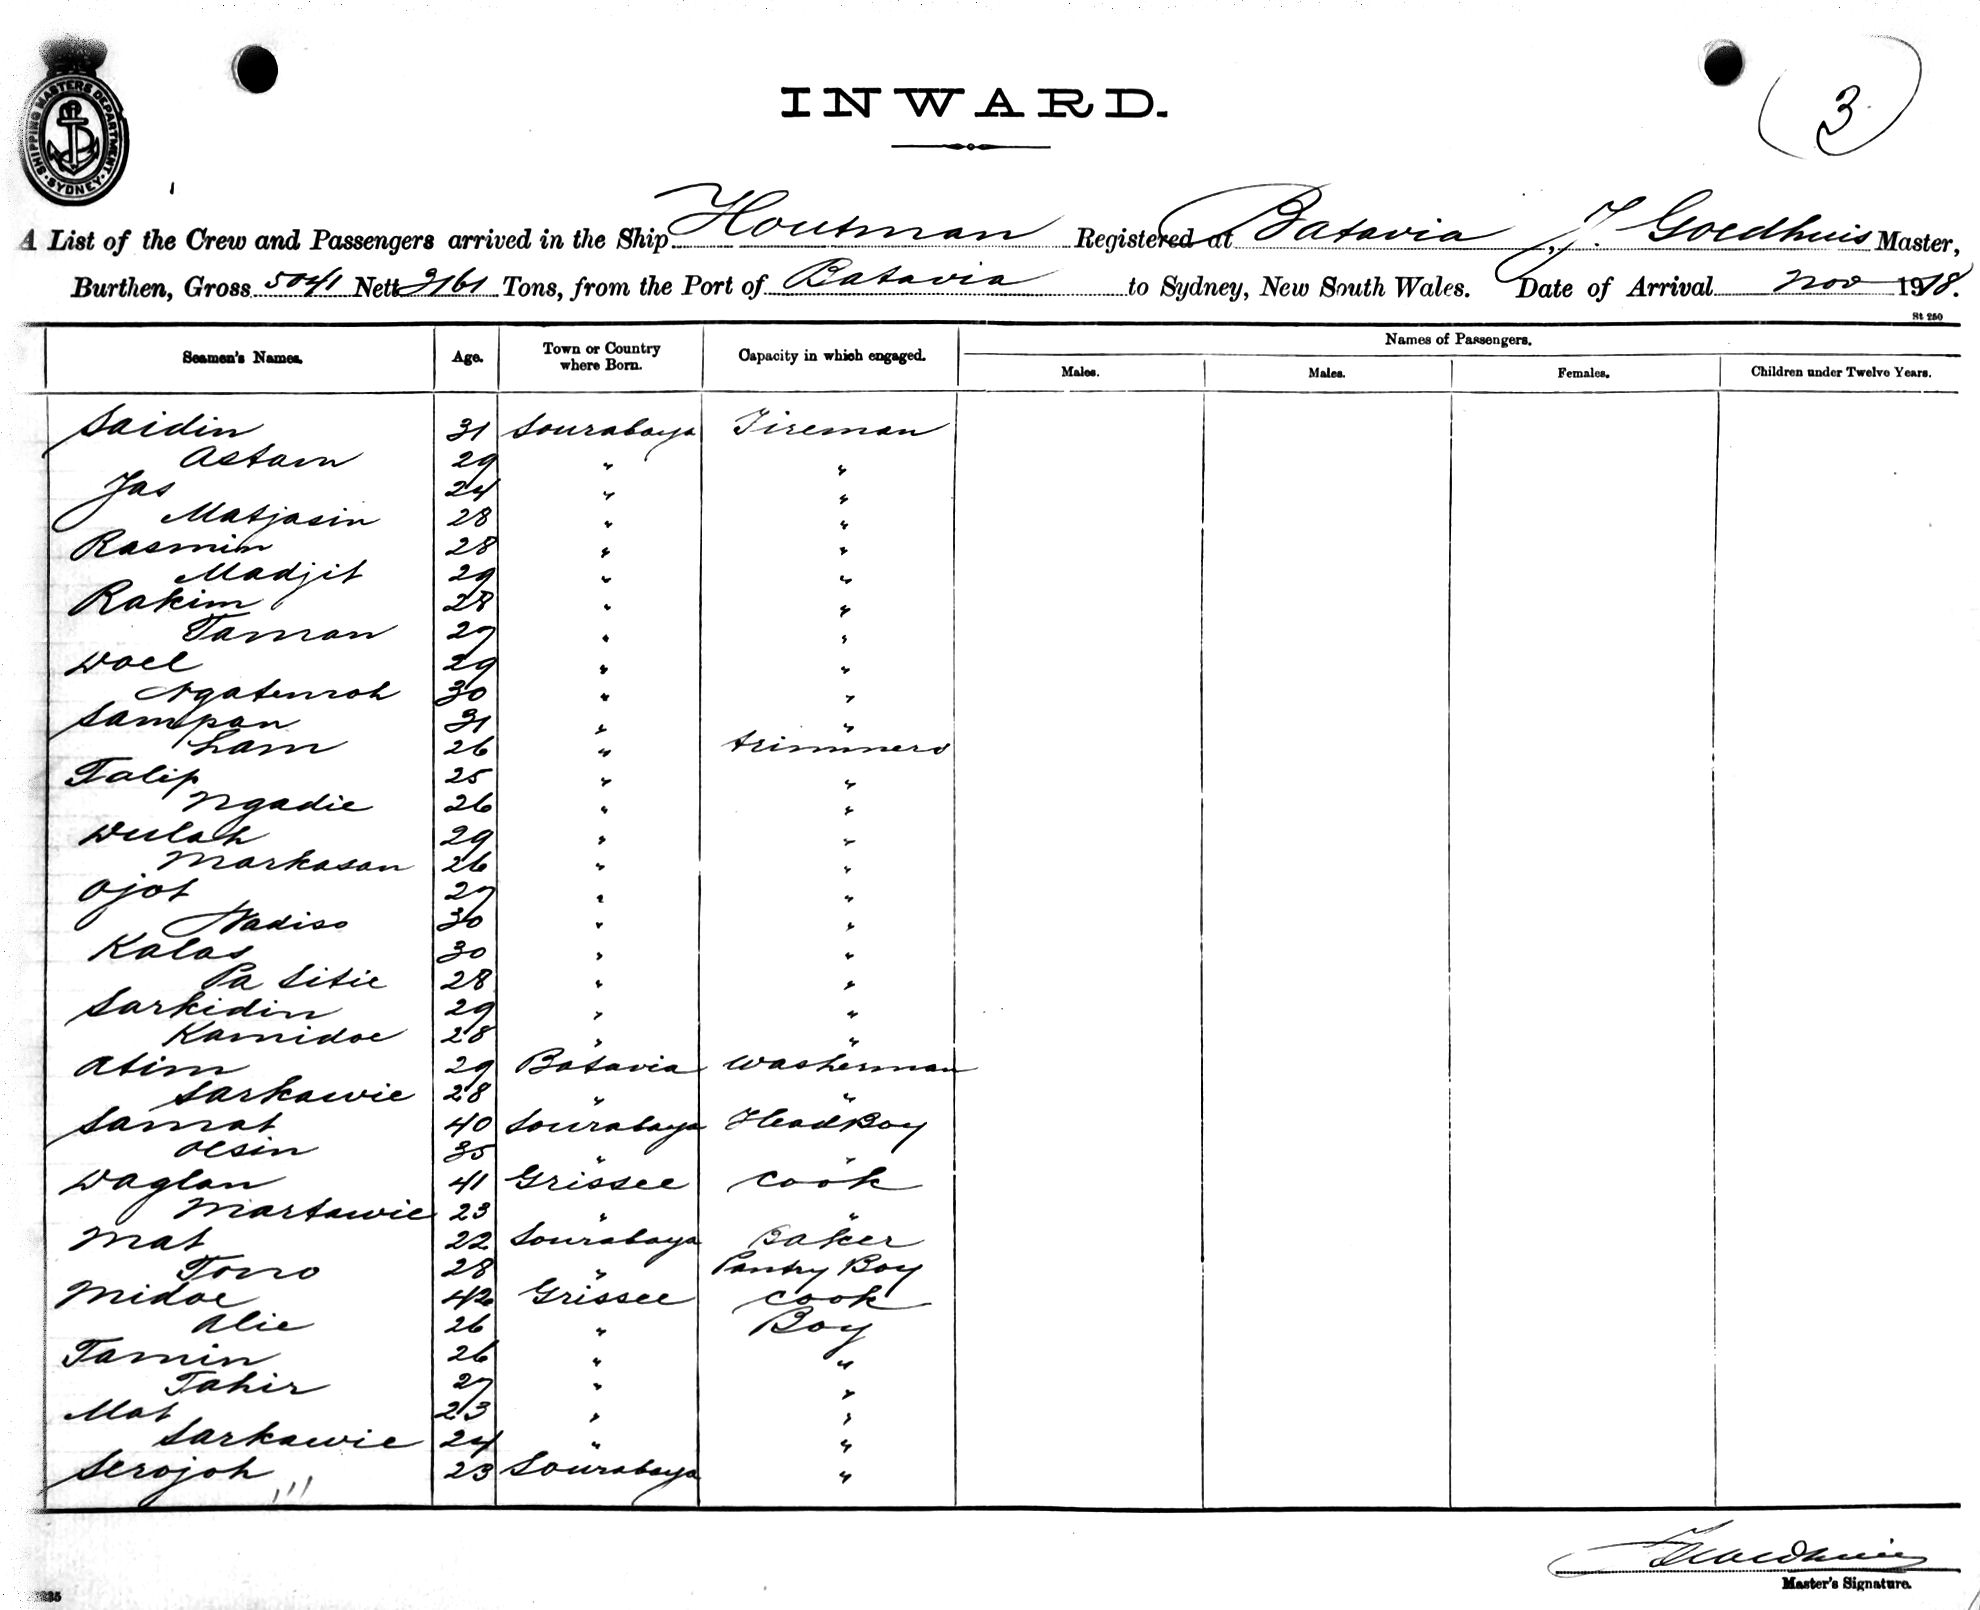 SHIPPING MASTERS DEPARTMENT
SYDNEY
INWARD.
3
A List of the Crew and Passengers arrived in the Ship Houtman Registered at Batavia, J. Goedhuis Master,
Burthen, Gross 5041 Nett 3161 Tons, from the Port of Batavia to Sydney, New South Wales. Date of Arrival Nov 1918.
St 250
Seamen's Names. Age. Town or Country where Born. Capacity in which engaged. Names of Passengers.
Males. Males. Females. Children under Twelve Years.
Saidin 31 Sourabaya Fireman
Astam 29 " "
Jas 24 " "
Matjasin 28 " "
Rasmin 28 " "
Madjit 29 " "
Rakim 28 " "
Taman 27 " "
Woel 29 " "
Ngatemoh 30 " "
Sampan 31 " "
Lam 26 " trimmers
Talip 25 " "
Ngadie 26 " "
Wulah 29 " "
Markasan 26 " "
Ojot 27 " "
Wadiso 30 " "
Kalas 30 " "
Pa Sitie 28 " "
Sarkidin 29 " "
Kamidoe 28 " "
Atim 29 Batavia Washerman
Sarkawie 28 " "
Samat 40 Sourabaya Head Boy
Oesin 35 " "
Waglan 41 Grissee Cook
Martawie 23 " "
Mat 22 Sourabaya Baker
Tomo 28 " Pantry Boy
Midoe 42 Grissee Cook
Alie 26 " Boy
Tamin 26 " "
Tahir 27 " "
Mat 23 " "
Sarkawie 24 " "
Serojoh 23 Sourabaya "
J Goedhuis
Master's Signature.